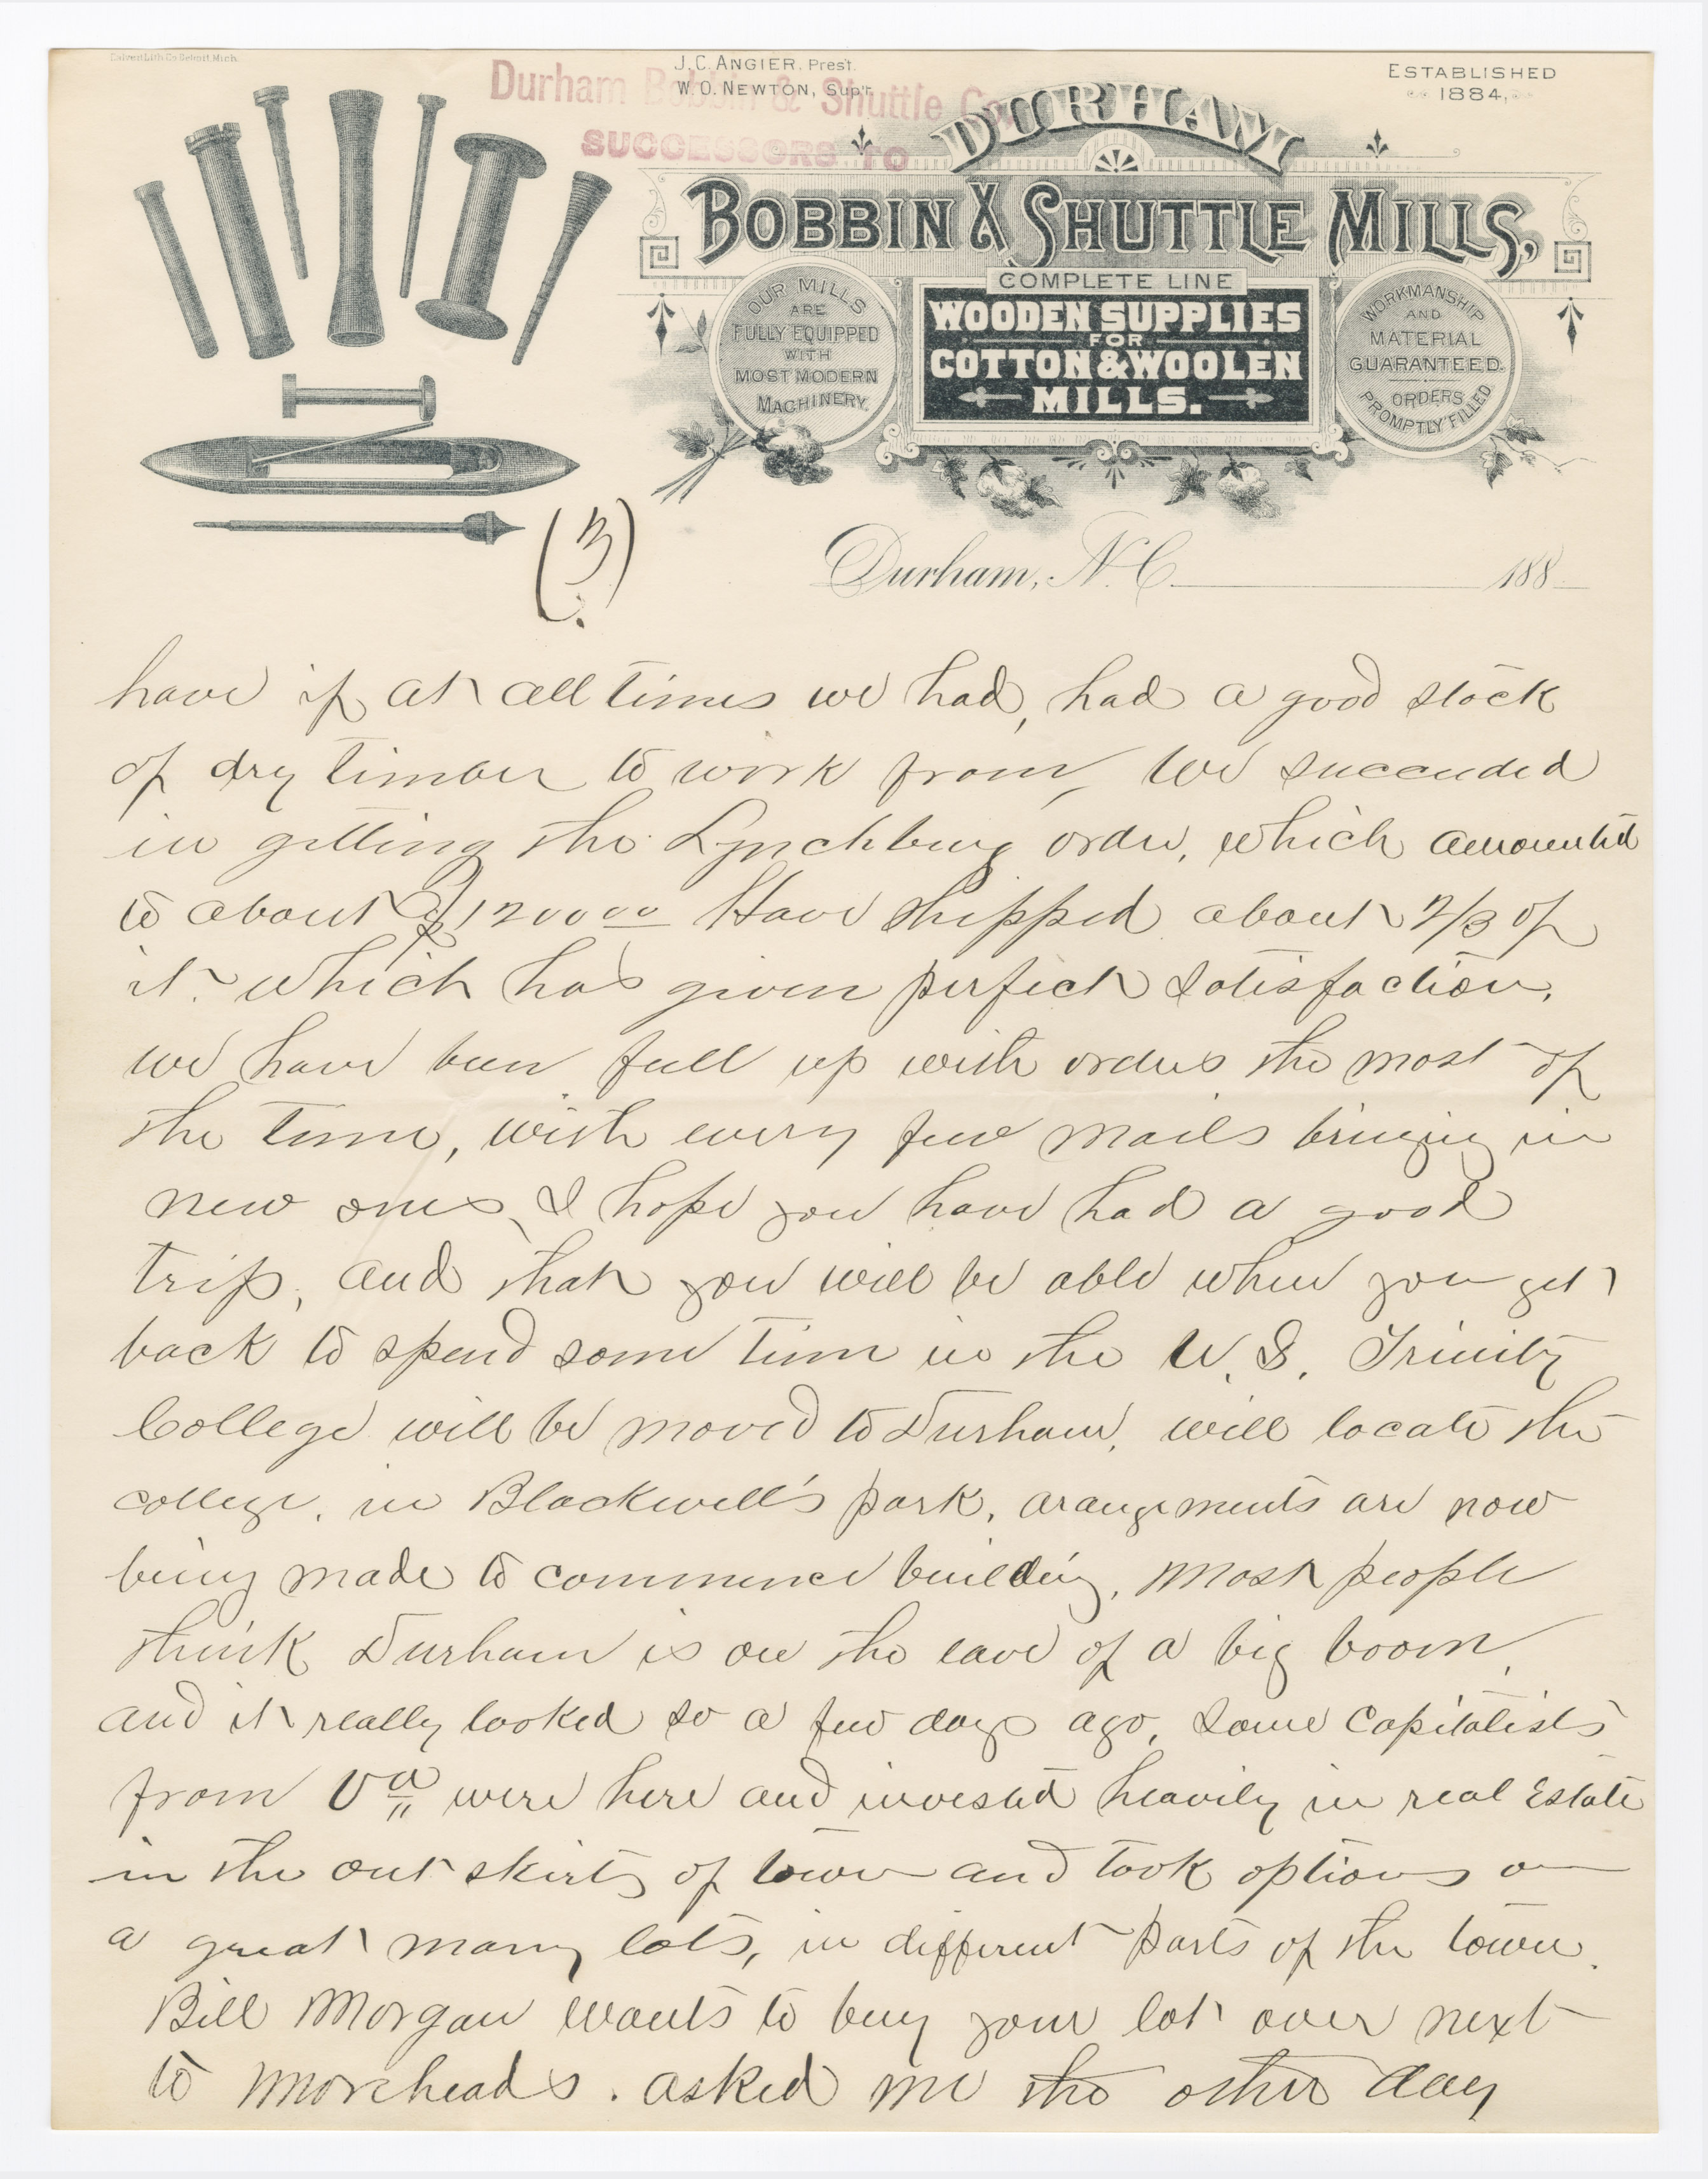 Calvert Lith. Co. Detroit, Mich.
J. C. ANGIER, Pres't.
W. O. NEWTON, Sup't.
ESTABLISHED
1884,
Durham Bobbin & Shuttle Co.
SUCCESSORS TO
DURHAM
BOBBIN & SHUTTLE MILLS,
COMPLETE LINE
WOODEN SUPPLIES
FOR
COTTON & WOOLEN
MILLS.
OUR MILLS
ARE
FULLY EQUIPPED
WITH
MOST MODERN
MACHINERY.
WORKMANSHIP
AND
MATERIAL
GUARANTEED.
ORDERS
PROMPTLY FILLED
(3)
Durham, N.C. 188
have if at all times we had, had a good stock
of dry timber to work from, We succeeded
in getting the Lynchburg order, which amounted
to about $1200 00 Have shipped about 2/3 of
it which has given perfect satisfaction,
we have been full up with orders the most of
the time, with every few mails bringing in
new ones, I hope you have had a good
trip, and that you will be able when you get
back to spend some time in the U. S. Trinity
College will be moved to Durham, will locate the
college, in Blackwell's park, arangements are now
being made to commence building, most people
think Durham is on the eave of a big boom,
and it really looked so a few days ago, some capitalists
from Va were here and invested heavily in real Estate
in the out skirts of town and took options on
a great many lots, in different parts of the town.
Bill Morgan wants to buy your lot over next
to Moreheads. asked me the other day